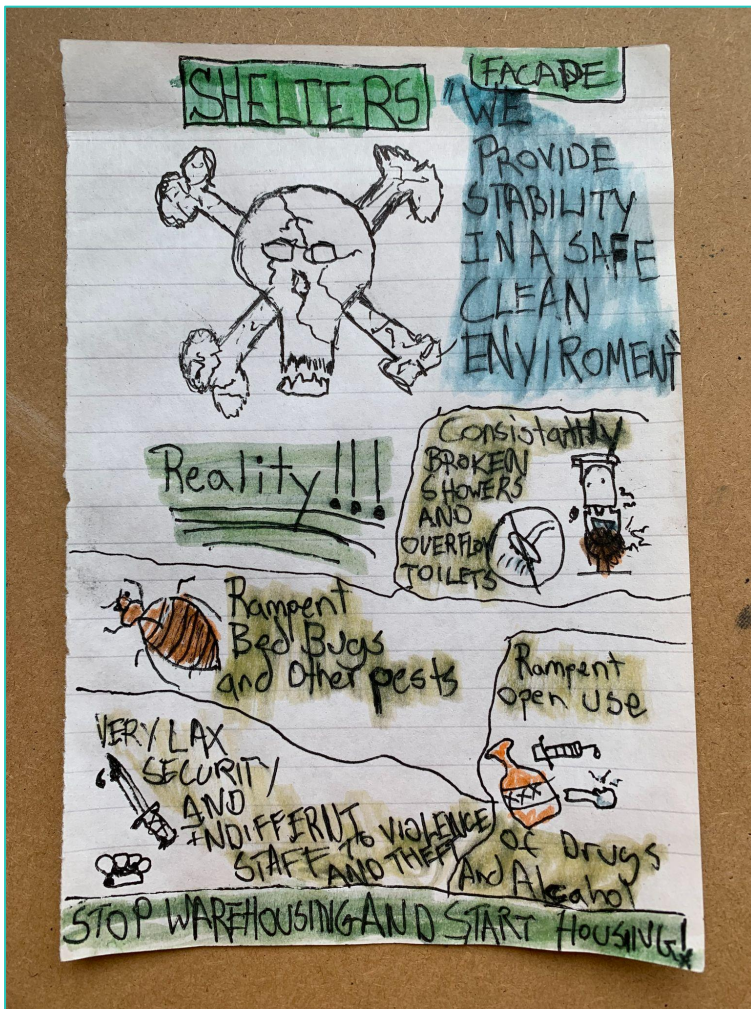 SHELTERS
FACADE
"WE
PROVIDE
STABILITY
IN A SAFE
CLEAN
ENVIROMENT"
Reality!!!
Consistantly
BROKEN
SHOWERS
AND
OVERFLOW
TOILETS
Rampent
Bed Bugs
and other pests
Rampent
open use
XXX
of Drugs
And Alcahol
VERY LAX
SECURITY
AND
INDIFFERNT
STAFF TO VIOLENCE
AND THEFT
STOP WAREHOUSING AND START HOUSING!